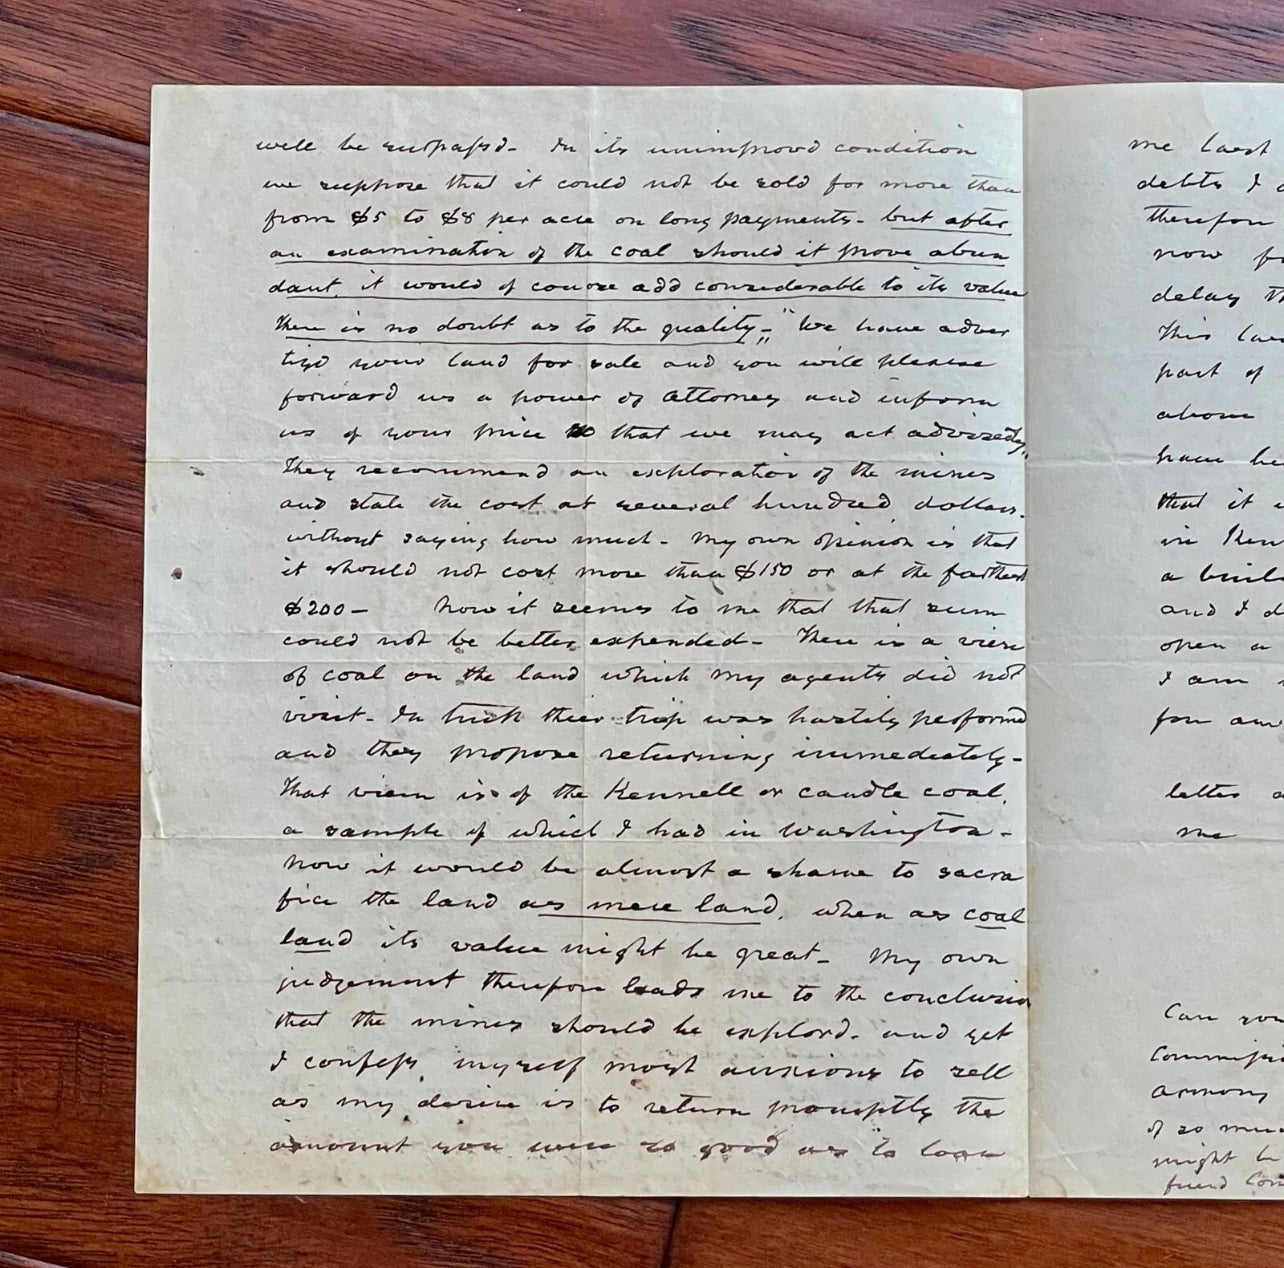 will be surpassd- In its unimprovd condition
we suppose that it could not be sold for more than
from $5 to $8 per acre on long payments- but after
an examination of the coal should it prove abun
dant, it would of course add considerable to its value
There is no doubt as to the quality-" We have adver
tisd your land for sale and you will please
forward us a power of attorney and inform
us of your price so that we may act advisedly"
They recommend an exploration of the mines
and state the cost at several hundred dollars-
without saying how much- My own opinion is that
it should not cost more than $150 or at the farthest
$200- Now it seems to me that that sum
could not be better expended- There is a vien
of coal on the land which my agents did not
visit- In truth their trip was hastily performd
and they propose returning immediately-
That viein is of the Kennell or candle coal,
a sample of which I had in Washington-
Now it would be almost a shame to sacra
fice the land as mere land, when as coal
land its value might be great- My own
judgement therefore leads me to the conclusion
that the mines should be explord- and yet
I confess, myself most anxious to sell
as my desire is to return promptly the
amount you were so good as to loan
me last
debts I
therefore
now
delay
This
part of
above
have
that it
in
a
and I
open a
I am
for
letter
me
Can you
armory
of so much
might be
friend